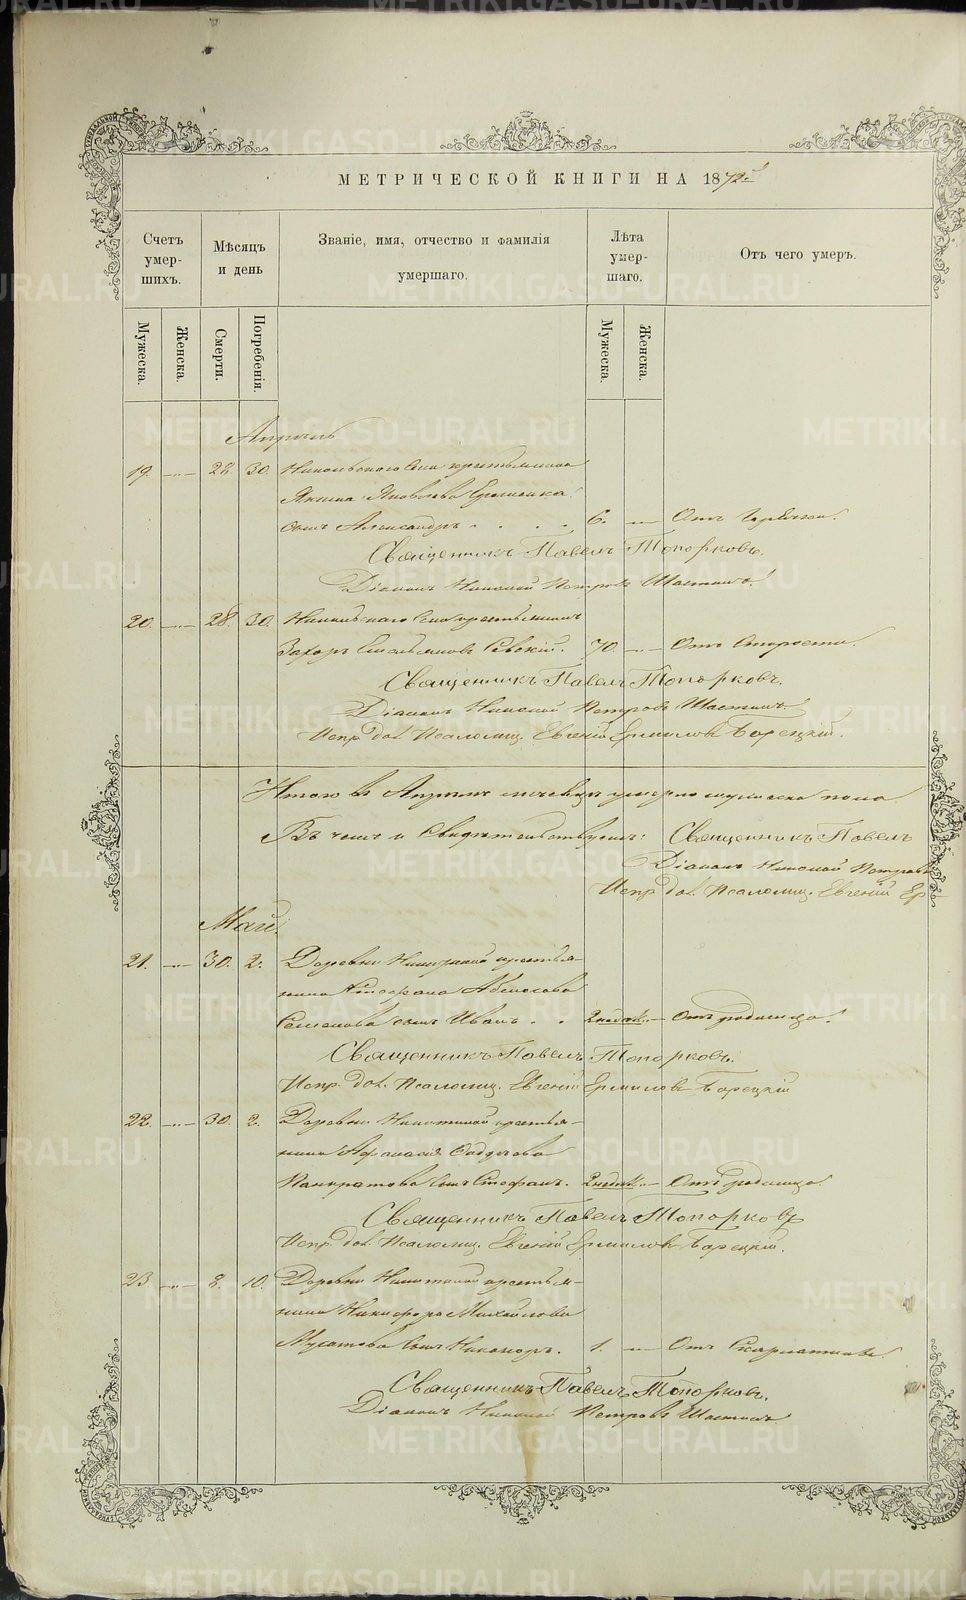 МЕТРИЧЕСКОЙ КНИГИ НА 1872й
Счетъ умер-шихъ.
Мѣсяцъ и день
Званіе, имя, отчество и фамилія умершаго.
Лѣта умер-шаго.
Отъ чего умеръ.
Мужеска.
Женска.
Смерти.
Погребенія.
Мужеска.
Женска.
Апрѣль
19. 28. 30. Никольскаго Села крестьянина
Якима Яковлева
сынъ Александръ 6. Отъ горячки.
Священникъ Павелъ Топорковъ.
Діаконъ Николай Петровъ Шастинъ.
20. 28. 30. Никольскаго Села крестьянинъ
Захаръ 70. Отъ Старости.
Священникъ Павелъ Топорковъ.
Діаконъ Николай Петровъ Шастинъ.
Испр. дол. Псаломщ. Евгеній Ермиловъ Борецкій.
Итого въ Апрѣлѣ мѣсяцѣ умерло мужеска пола
Въ чемъ и Свидѣтельствуемъ: Священникъ Павелъ
Діаконъ Николай Петровъ
Испр. дол. Псаломщ. Евгеній Ер-
Май.
21. 30. 2. Деревни крестья-
нина Стефана
Семенова сынъ Иванъ 2 недѣл. Отъ родимца.
Священникъ Павелъ Топорковъ.
Испр. дол. Псаломщ. Евгеній Ермиловъ Борецкій
22. 30. 2. Деревни Никитиной крестья-
нина Афанасія
Панкратова сынъ Стефанъ. 2 недѣл. Отъ родимца.
Священникъ Павелъ Топорковъ
Испр. дол. Псаломщ. Евгеній Ермиловъ Борецкій.
23. 8. 10. Деревни Никитиной крестья-
нина Никифора Михайлова
Мусатова сынъ Никаноръ. 1. Отъ Скарлатины.
Священникъ Павелъ Топорковъ.
Діаконъ Николай Петровъ Шастинъ
METRIKI.GASO-URAL.RU